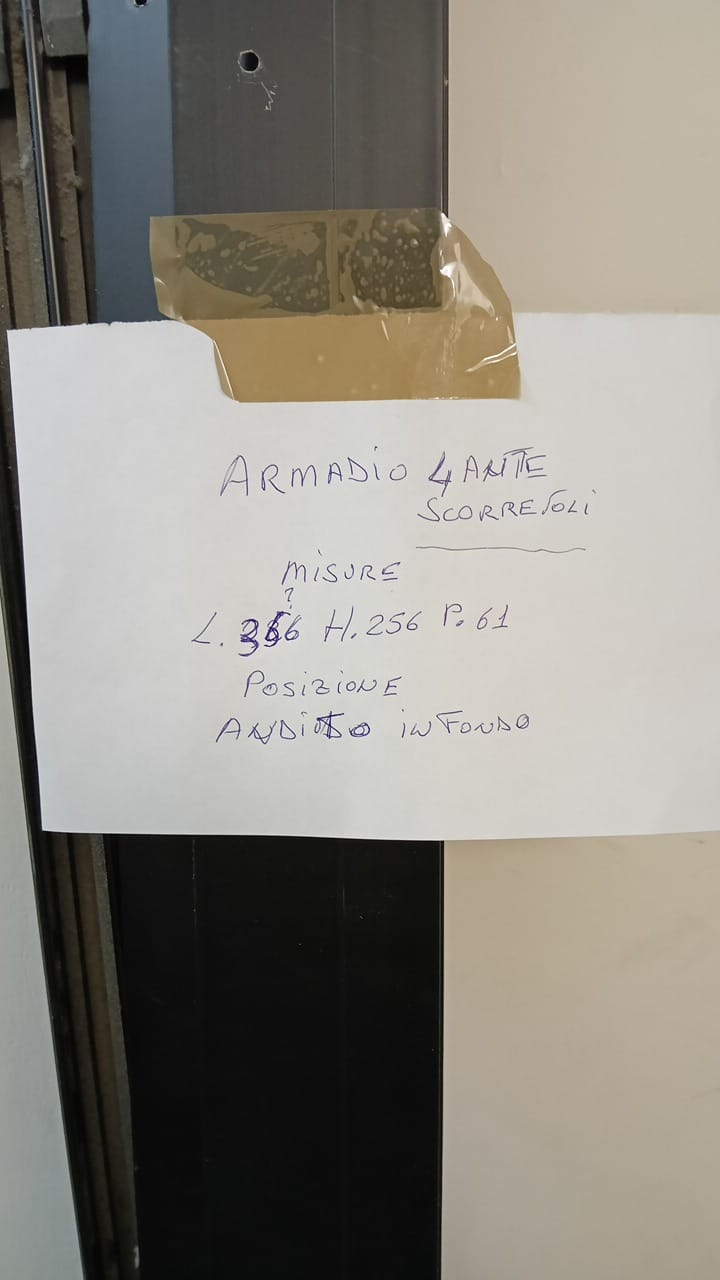 ARMADIO 4 ANTE
SCORREVOLI
MISURE
?
L. H. 256 P. 61
POSIZIONE
ANDITO IN FONDO